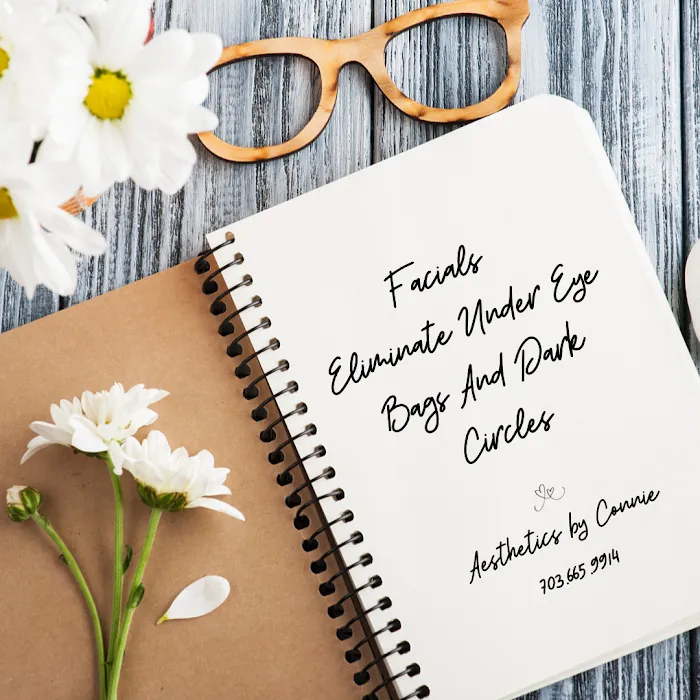 Facials
Eliminate Under Eye
Bags And Dark
Circles
Aesthetics by Connie
703.665.9914